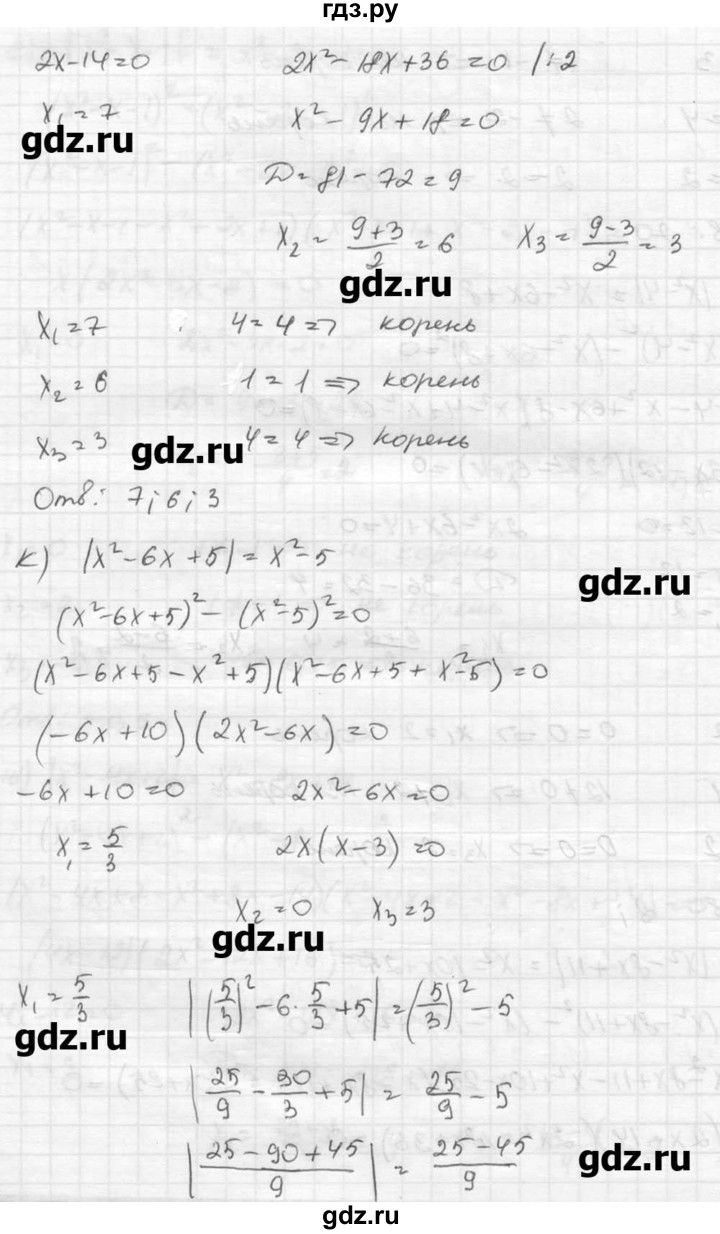 гдз.ру
2x-14=0     2x²-18x+36=0 /:2
x₁=7     x²-9x+18=0
gdz.ru
D=81-72=9
x₂=(9+3)/2=6     x₃=(9-3)/2=3
gdz.ru
x₁=7     4=4 => корень
x₂=6     1=1 => корень
x₃=3     4=4 => корень
gdz.ru
Отв: 7; 6; 3
к) |x²-6x+5|=x²-5
gdz.ru
(x²-6x+5)²-(x²-5)²=0
(x²-6x+5-x²+5)(x²-6x+5+x²-5)=0
(-6x+10)(2x²-6x)=0
-6x+10=0     2x²-6x=0
x₁=5/3     2x(x-3)=0
x₂=0     x₃=3
gdz.ru
x₁=5/3     |(5/3)²-6·5/3+5|=(5/3)²-5
gdz.ru
|25/9-30/3+5|=25/9-5
|(25-90+45)/9|=(25-45)/9
gdz.ru
gdz.ru